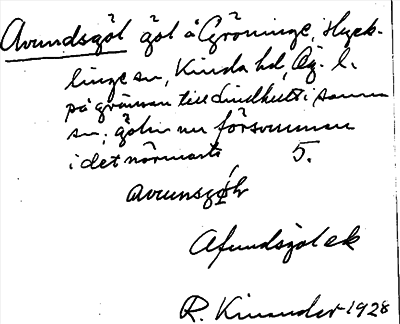 Avundsgöl göl å Gröninge, Hyck-
linge sn, Kinda hd, Ög. l.
på gränsen till Lindhult i samma
sn; gölen nu försvunnen
i det närmaste 5.
avunsgöln
Afundsgöl ek
R. Kinander 1928